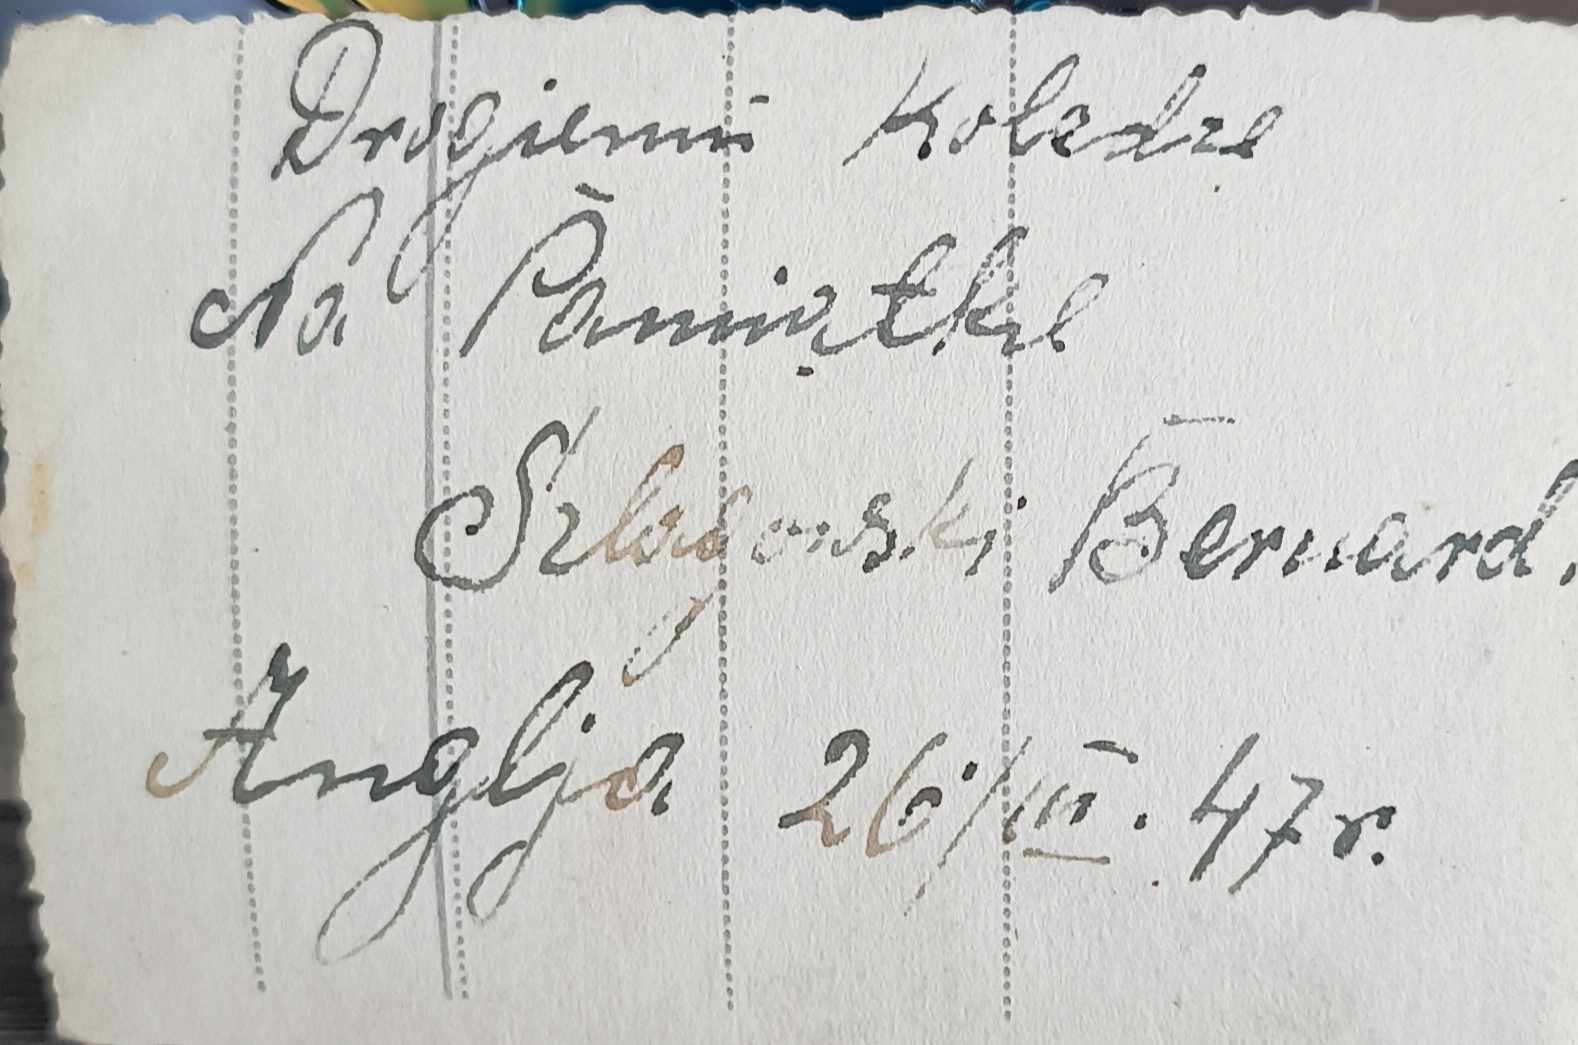 Drogiemu Koledze
Na Pamiątke
Szlagowski Bernard.
Anglja 26/III. 47 r.